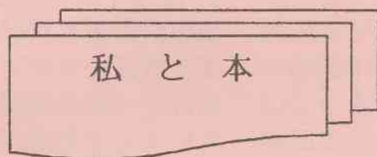 私 と 本